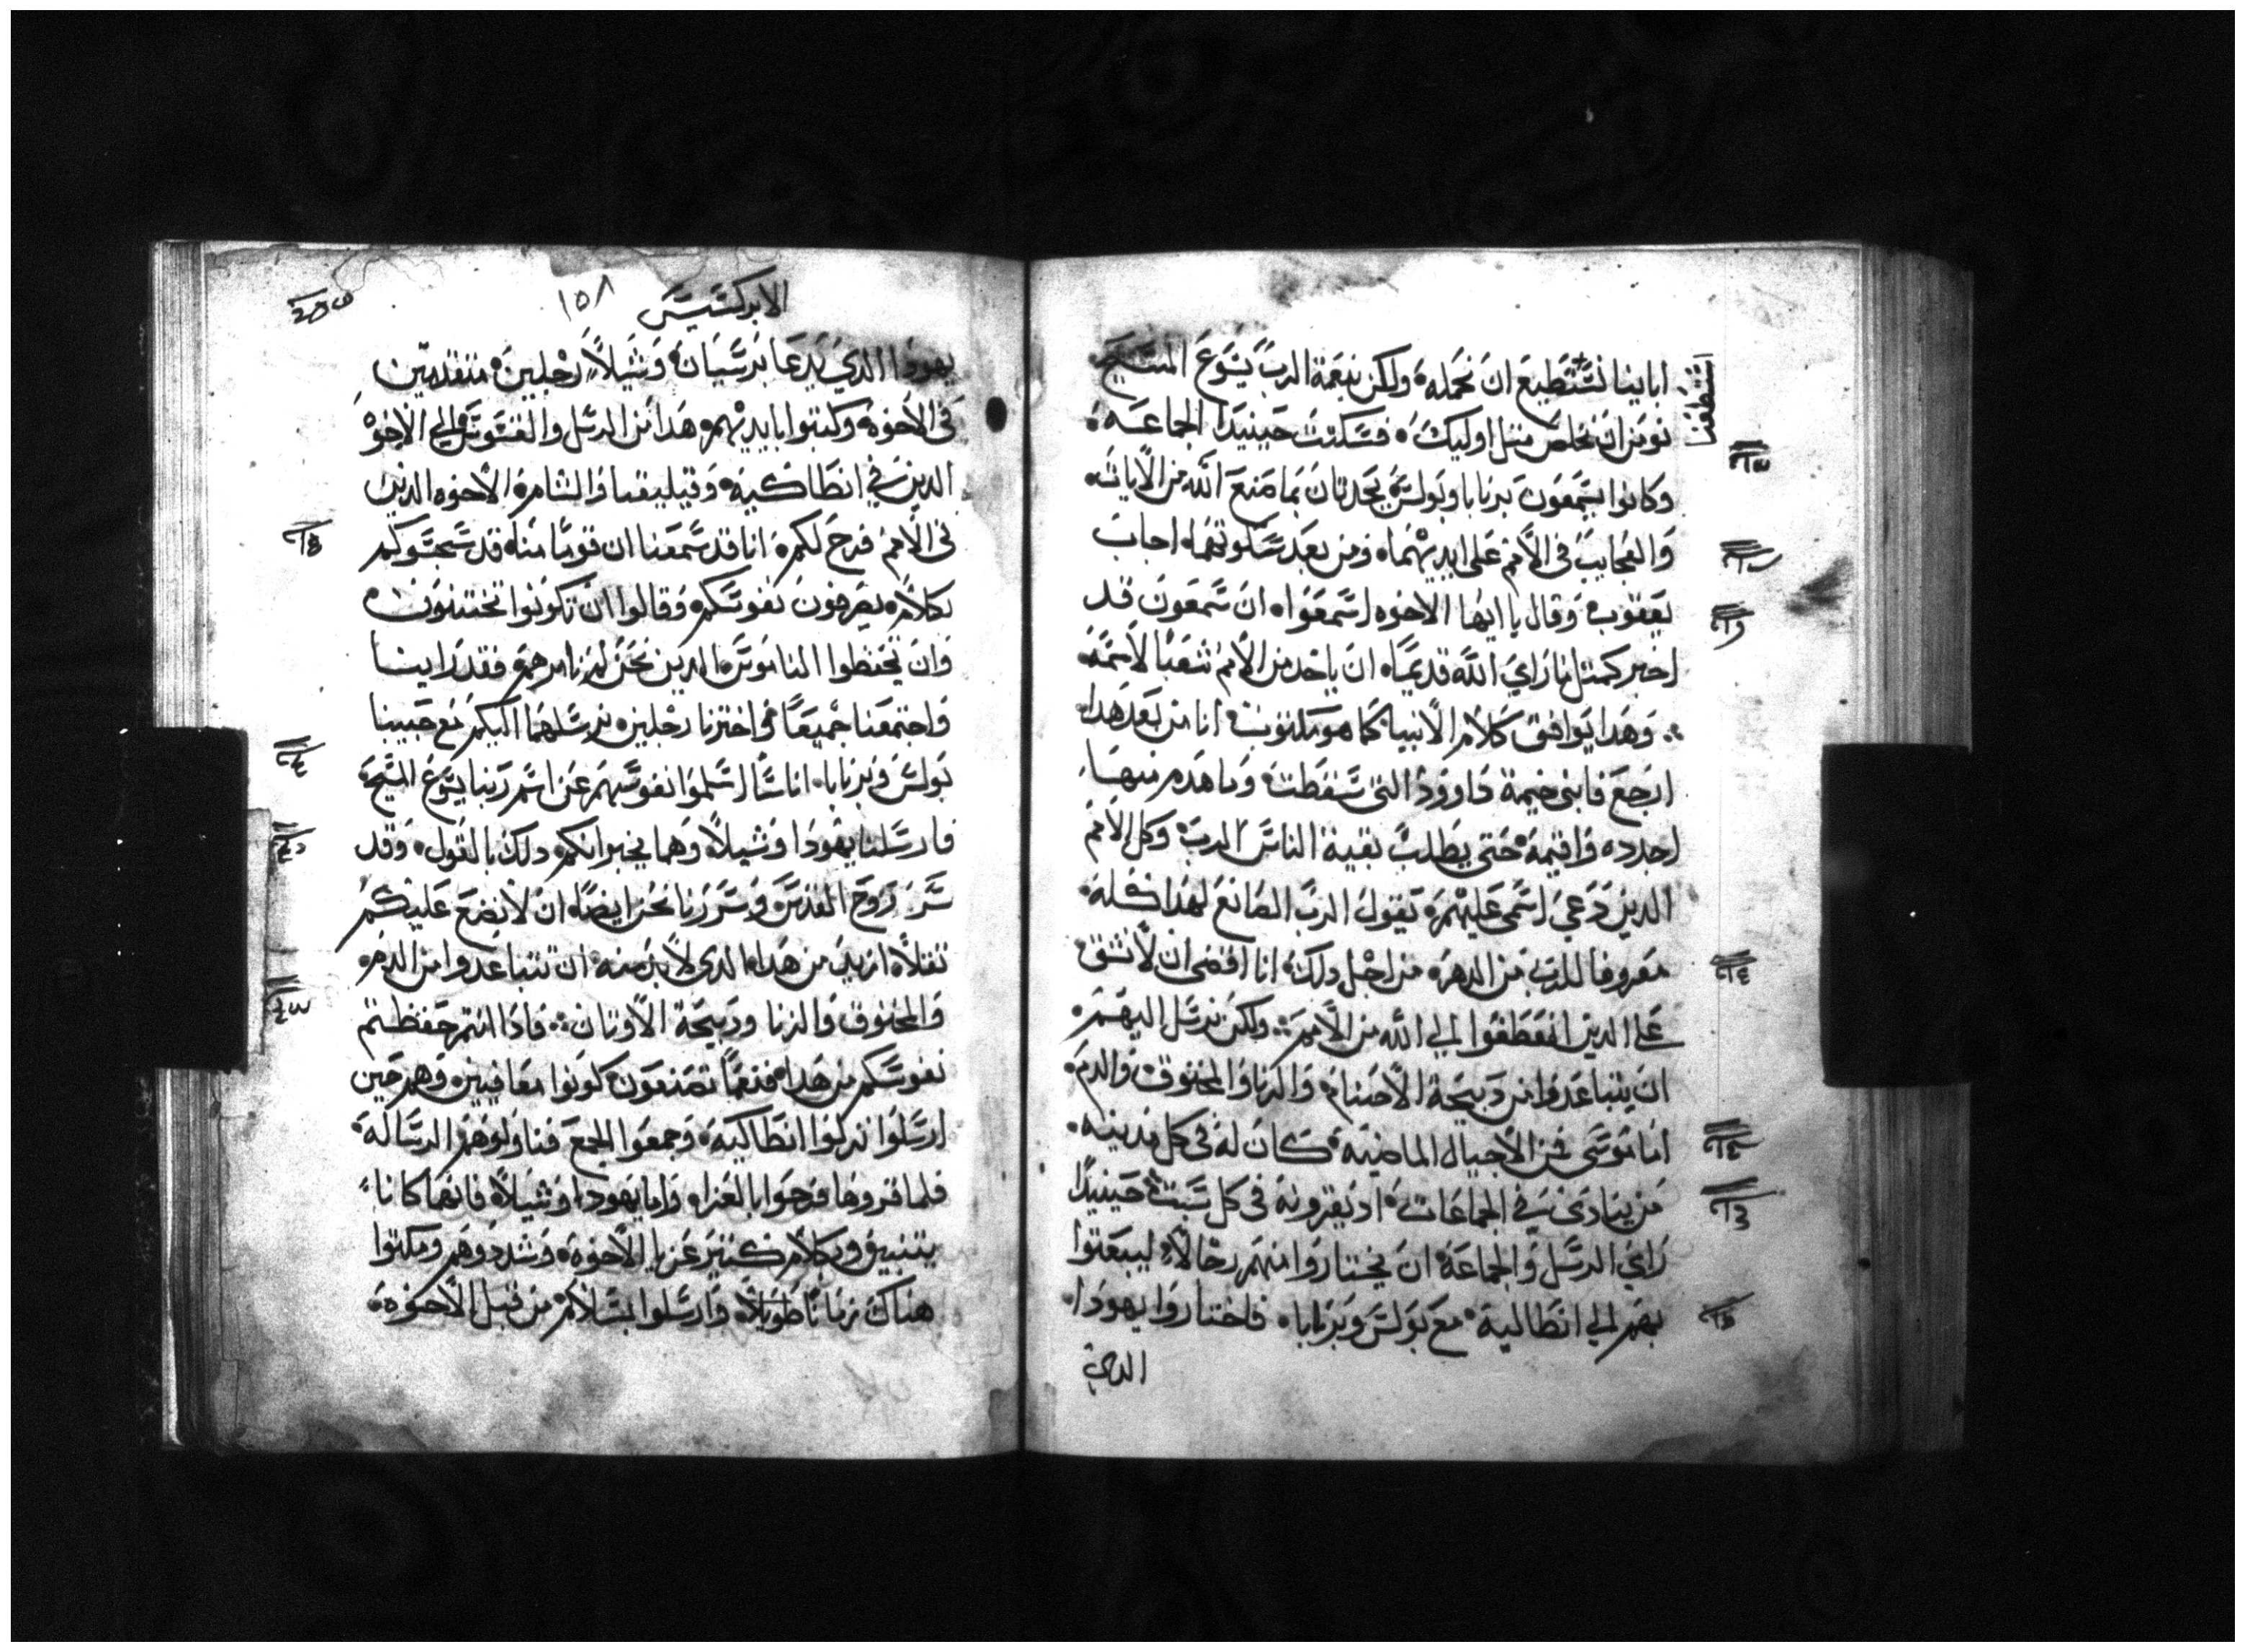 ابابنا نستطيع ان نحمله ولكن بنعمة الرب يسوع المسيح
نومن ان نخلص مثل اوليك فسكتت حينيدا الجماعه
وكانوا يسمعون برنابا وبولس يحدثان بما صنع الله من الايات
والعجايب في الامم على ايديهما ومن بعد سكوتهما اجاب
يعقوب وقال يا ايها الاخوه اسمعوا ان سمعون قد
اخبركم مثل ما راي الله قديما ان ياخد من الامم شعبا لاسمه
وهدا يوافق كلام الانبيا كما هو مكتوب انا من بعد هدا
ارجع فابني خيمة داوود التي سقطت وما هدم منها
اجدده واقيمه حتى يطلب بقية الناس الرب وكل الامم
الدين دعي اسمي عليهم يقول الرب الصانع لهدا كله
معروفا للرب من الدهر من اجل دلك انا اقضى ان لا نشق
على الدين انعطفوا الي الله من الامم ولكن نرسل اليهم
ان يتباعدوا من دبيحة الاصنام والزنا والمخنوق والدم
اما موسى فمن الاجيال الماضيه كان له في كل مدينه
من ينادى في الجماعات اد يقرونه في كل سبت حينيدا
راي الرسل والجماعة ان يختاروا منهم رجالا ليبعتوا
بهم الي انطاكية مع بولس وبرنابا فاختاروا يهودا
الدي
الابركسيس
١٥٨
يهودا الدي يدعا برسيان وشيلا رجلين متقدمين
في الاخوه وكتبوا بايديهم هدا من الرسل والقسوس الي الاخوه
الدين في انطاكية وقيليقيا والشامره الاخوه الدين
في الامم فرح لكم انا قد سمعنا ان قوما منا قد سجسوكم
بكلام يصرفون نفوسكم وقالوا ان تكونوا تختتنون
وان تحفظوا الناموس الدين نحن لم نامرهم فقد راينا
واجتمعنا جميعا واخترنا رجلين نرسلهما اليكم مع حبيبنا
بولس وبرنابا اناسا سلموا نفوسهم عن اسم ربنا يسوع المسيح
فارسلنا يهودا وشيلا وهما يخبرانكم دلك بالقول وقد
سر روح القدس وسررنا نحن ايضا ان لا نضع عليكم
تقلا ازيد من هدا الدي لا بد منه ان تتباعدوا من الدم
والمخنوق والزنا ودبيحة الاوتان فادا انتم حفظتم
نفوسكم من هدا فنعما تصنعون كونوا معافيين وهم حين
ارسلوا نزلوا انطاكية وجمعوا الجمع فناولوهم الرسالة
فلما قروها فرحوا بالعزا واما يهودا وشيلا فانهما كانا
بتنبيق وبكلام كتير عزيا الاخوه وشددوهم ومكتوا
هناك زمانا طويلا وارسلوا بسلام من قبل الاخوه